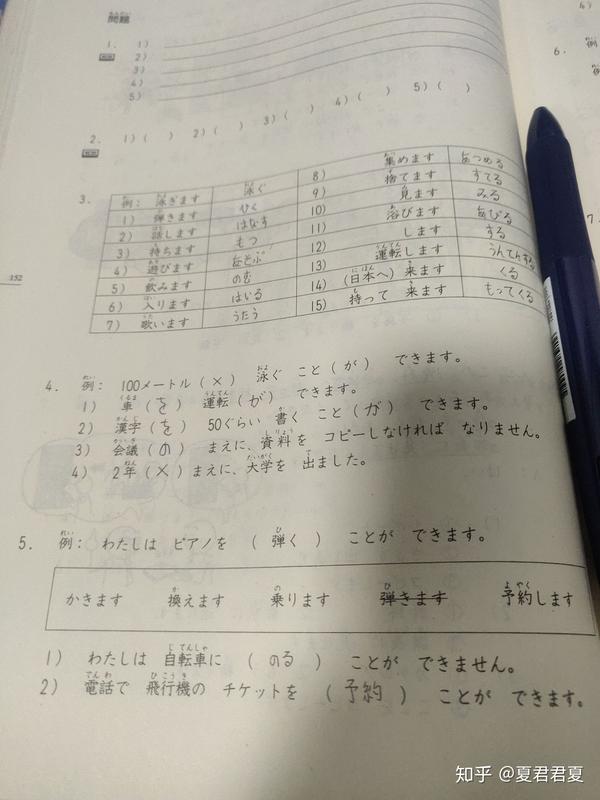 問題
1. 1)
2)
3)
4)
5)
2. 1) ( ) 2) ( ) 3) ( ) 4) ( ) 5) ( )
3.
例: 泳ぎます 泳ぐ 8) 集めます あつめる
1) 弾きます ひく 9) 捨てます すてる
2) 話します はなす 10) 見ます みる
3) 持ちます もつ 11) 浴びます あびる
4) 遊びます あそぶ 12) します する
5) 飲みます のむ 13) 運転します うんてんする
6) 入ります はいる 14) (日本へ) 来ます くる
7) 歌います うたう 15) 持って 来ます もってくる
152
4. 例: 100メートル (×) 泳ぐ こと (が) できます。
1) 車 (を) 運転 (が) できます。
2) 漢字 (を) 50ぐらい 書く こと (が) できます。
3) 会議 (の) まえに、資料を コピーしなければ なりません。
4) 2年 (×) まえに、大学を 出ました。
5. 例: わたしは ピアノを ( 弾く ) ことが できます。
かきます 換えます 乗ります 弾きます 予約します
1) わたしは 自転車に ( のる ) ことが できません。
2) 電話で 飛行機の チケットを ( 予約 ) ことが できます。
4)
6. 例
例
7.
知乎 @夏君君夏